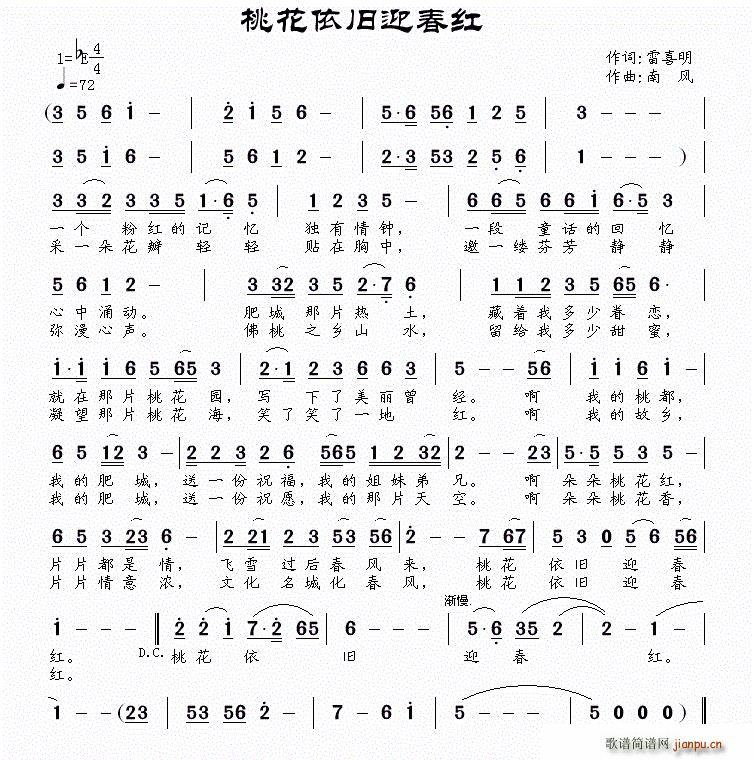 桃花依旧迎春红
1=♭E 4/4
♩=72
作词:雷喜明
作曲:南 风
(3 5 6 i - | 2 i 5 6 - | 5·6 56 1 2 5 | 3 - - - |
3 5 i 6 - | 5 6 1 2 - | 2·3 53 2 5 6 | 1 - - ) |
3 32 3 3 5 1·6 5 | 1 2 3 5 - | 6 6 5 6 6 i 6·5 3 |
一个 粉红的记 忆 独有情钟, 一段 童话的回 忆
采一朵花瓣 轻轻 贴在胸中, 邀一缕芬芳 静静
5 6 1 2 - | 3 32 3 5 2·7 6 | 1 12 3 5 65 6· |
心中涌动。 肥城 那片热 土, 藏着我多少眷 恋,
弥漫心声。 佛桃 之乡山 水, 留给我多少甜 蜜,
i·i i 6 5 65 3 | 2·1 2 3 6 6 3 | 5 - - 56 | i i 6 i - |
就在那片桃花 园, 写 下了美丽曾 经。 啊 我的桃都,
凝望那片桃花 海, 笑了笑了一地 红。 啊 我的故乡,
6 5 12 3 - | 2 2 3 2 6 565 1 2 32 | 2 - - 23 | 5·5 5 3 5 - |
我的肥 城, 送一份祝福,我的姐妹弟 兄。 啊 朵朵桃花红,
我的肥 城, 送一份祝愿,我的那片天 空。 啊 朵朵桃花香,
6 5 3 23 6 - | 2 21 2 3 53 56 | 2 - - 7 67 | 5 3 0 5 6 56 |
片片都是 情, 飞雪 过后春风 来, 桃花 依旧 迎春
片片情意 浓, 文化 名城化春 风, 桃花 依旧 迎春
渐慢
i - - - ‖ 2 2 i 7·2 65 | 6 - - - | 5·6 35 2 | 2 - 1 - |
红。 D.C. 桃花 依 旧 迎 春 红。
红。
1 - - (23 | 5 53 5 23 2 - | 7 - 6 i | 5 - - - | 5 0 0 0) ‖
歌谱简谱网
jianpu.cn